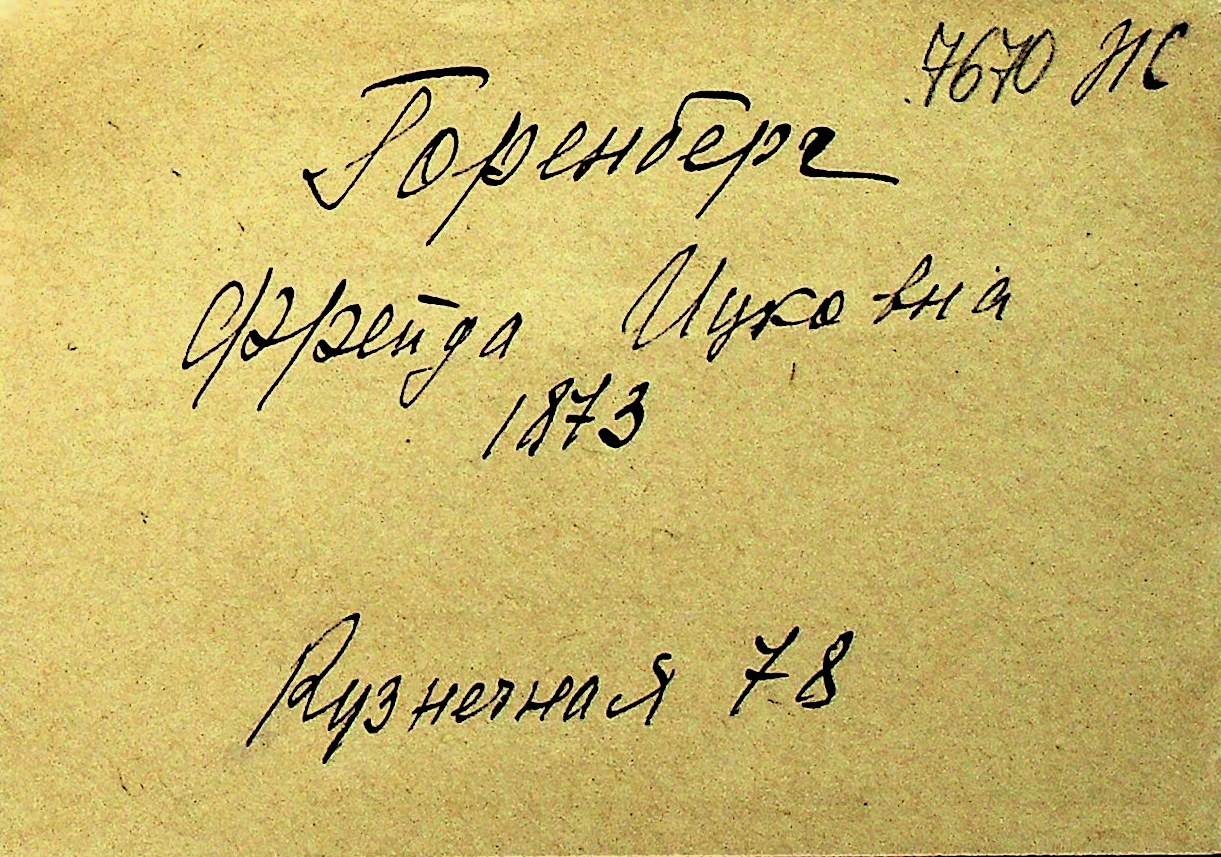 7670 НС
Горенберг
Фрейда Ицковна
1873
Кузнечная 78